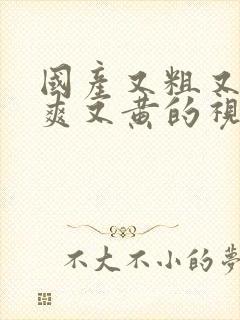 國產又粗又
爽又黃的視
不大不小的夢